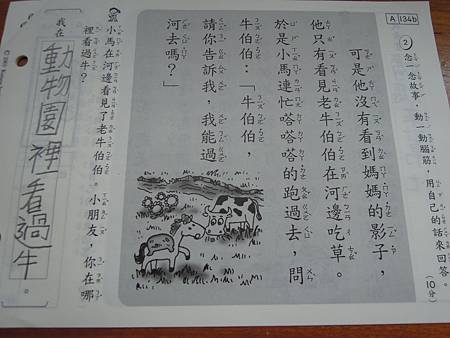 A 134b
② 念一念故事，動一動腦筋，用自己的話來回答。(10分)
可是他沒有看到媽媽的影子，
他只有看見老牛伯伯在河邊吃草。
於是小馬連忙嗒嗒嗒的跑過去，問
牛伯伯：「牛伯伯，
請你告訴我，我能過
河去嗎？」
小馬在河邊看見了老牛伯伯。小朋友，你在哪
裡看過牛？
我在動物園裡看過牛。